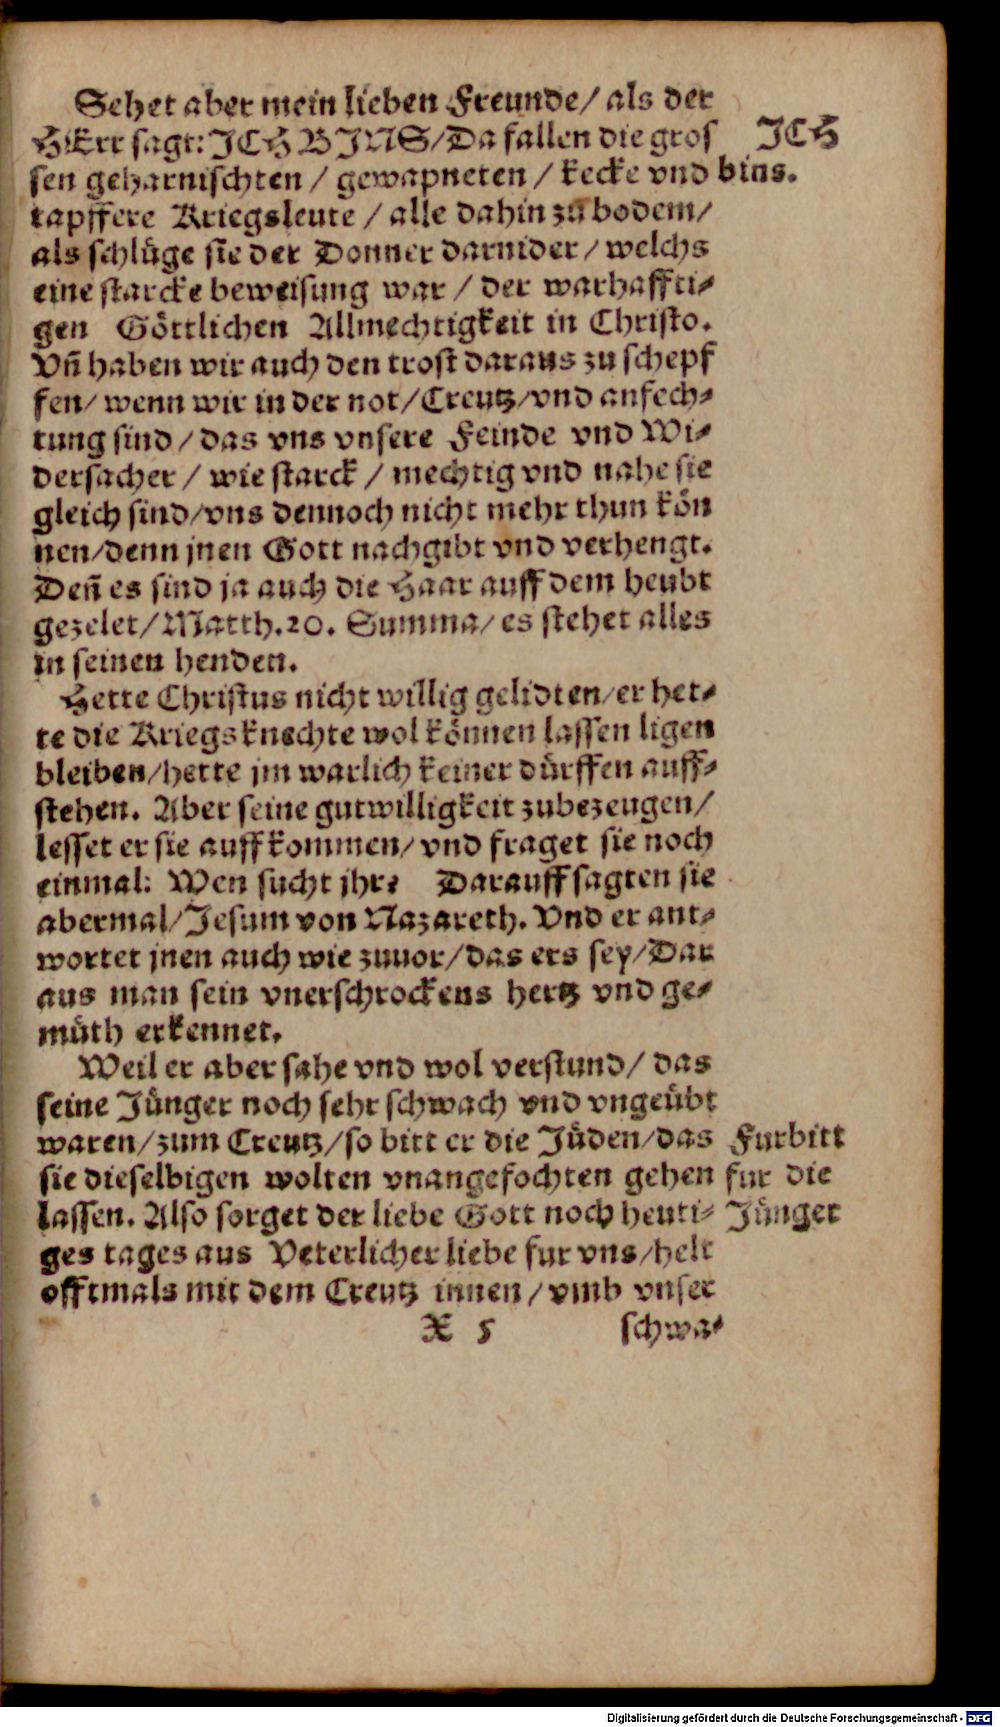 Sehet aber mein lieben Freunde/ als der
HErr sagt: JCH BJNS/Da fallen die gros
JCH
sen geharnischten / gewapneten / kecke vnd
bins.
tapffere Kriegsleute / alle dahin zu bodem/
als schlüge sie der Donner darnider / welchs
eine starcke beweisung war / der warhaffti-
gen Göttlichen Allmechtigkeit in Christo.
Vñ haben wir auch den trost daraus zu schepf
fen/ wenn wir in der not/Creutz/vnd anfech-
tung sind / das vns vnsere Feinde vnd Wi-
dersacher / wie starck / mechtig vnd nahe sie
gleich sind/vns dennoch nicht mehr thun kön
nen/denn jnen Gott nachgibt vnd verhengt.
Deñ es sind ja auch die Haar auff dem heubt
gezelet/Matth.20. Summa/ es stehet alles
in seinen henden.
Hette Christus nicht willig gelidten/er het-
te die Kriegsknechte wol können lassen ligen
bleiben/hette jm warlich keiner dürffen auff-
stehen. Aber seine gutwilligkeit zubezeugen/
lesset er sie auffkommen/ vnd fraget sie noch
einmal: Wen sucht jhr? Darauff sagten sie
abermal/Jesum von Nazareth. Vnd er ant-
wortet jnen auch wie zuuor/das ers sey/Dar
aus man sein vnerschrockens hertz vnd ge-
müth erkennet.
Weil er aber sahe vnd wol verstund/ das
seine Jünger noch sehr schwach vnd vngeübt
waren/zum Creutz/so bitt er die Jüden/das
Furbitt
sie dieselbigen wolten vnangefochten gehen
fur die
lassen. Also sorget der liebe Gott noch heuti-
Jünger
ges tages aus Veterlicher liebe fur vns/helt
offtmals mit dem Creutz innen / vmb vnser
X 5 schwa-
Digitalisierung gefördert durch die Deutsche Forschungsgemeinschaft - DFG